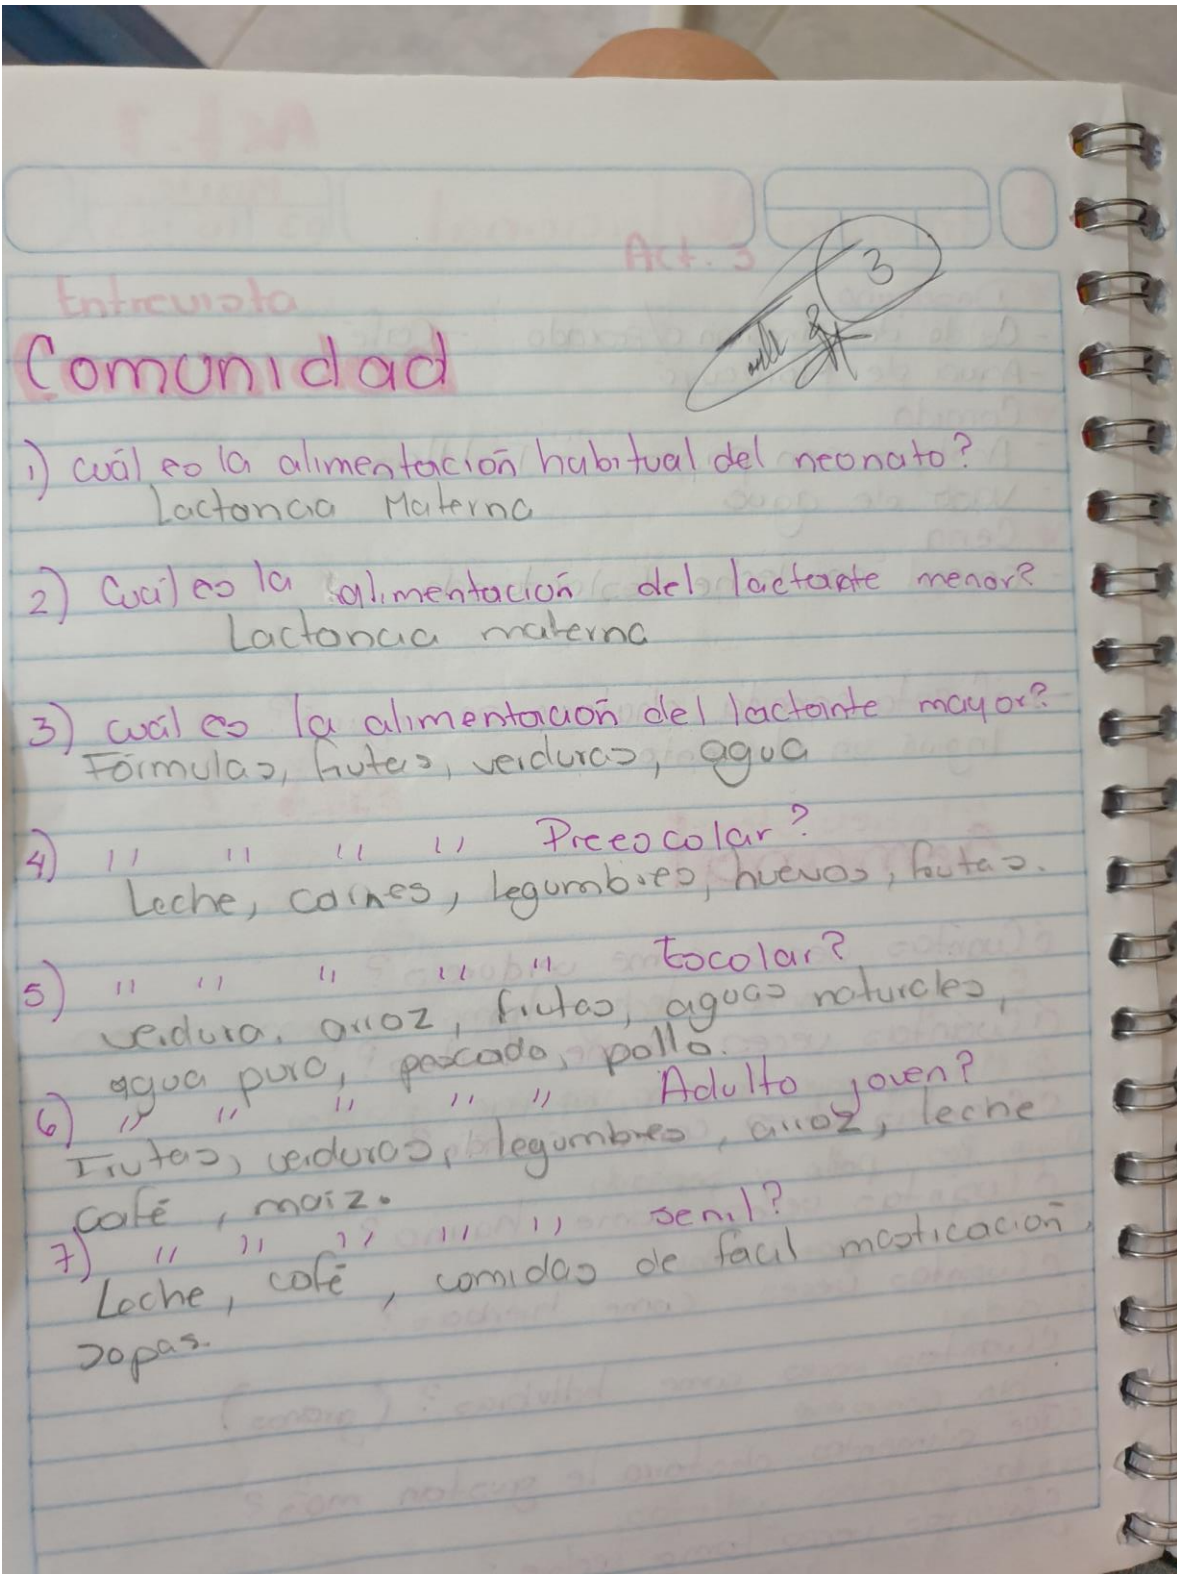 Act. 3
3
Entrevista
Comunidad
1) cuál es la alimentación habitual del neonato?
Lactancia Materna
2) Cuál es la alimentación del lactante menor?
Lactancia materna
3) cuál es la alimentación del lactante mayor?
Fórmulas, frutas, verduras, agua
4) " " " " Preescolar?
Leche, carnes, legumbres, huevos, frutas.
5) " " " " " Escolar?
verdura, arroz, frutas, aguas naturales,
agua pura, pescado, pollo.
6) " " " " " Adulto joven?
Frutas, verduras, legumbres, arroz, leche
café, maiz.
7) " " " " " senil?
Leche, café, comidas de fácil masticación,
sopas.